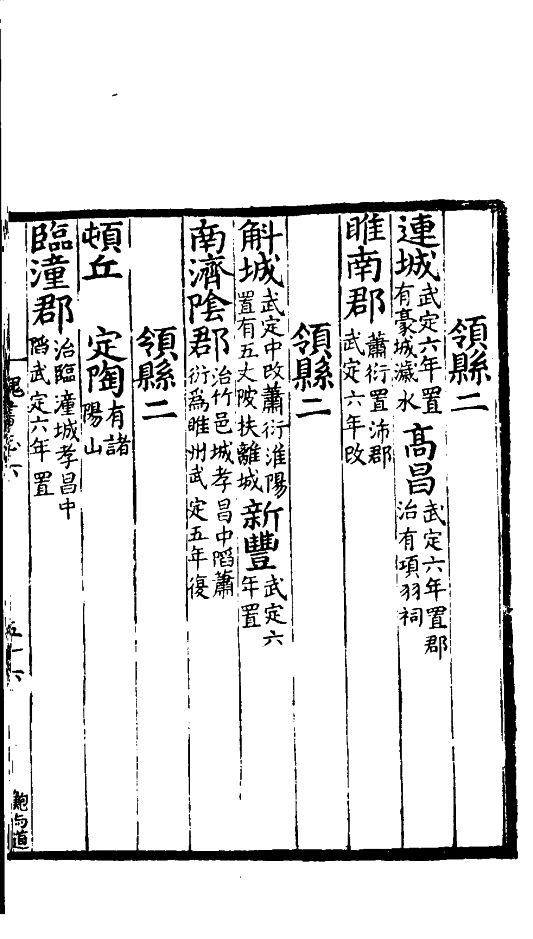 領縣二
連城武定六年置有豪城濊水高昌武定六年置郡治有項羽祠
睢南郡蕭衍置沛郡武定六年改
領縣二
斛城武定中改蕭衍淮陽置有五丈陂扶離城新豐武定六年置
南濟陰郡治竹邑城孝昌中䧟蕭衍爲睢州武定五年復
領縣二
頓丘 定陶有諸陽山
臨潼郡治臨潼城孝昌中䧟武定六年置
魏書志六
五十六
鮑与道